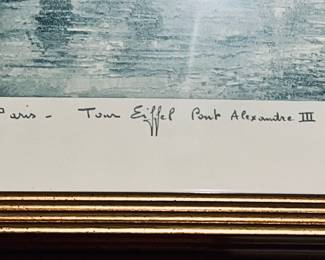 Paris - Tour Eiffel Pont Alexandre III